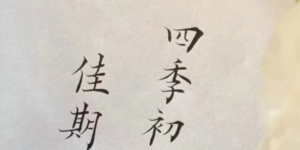 四季初
佳期